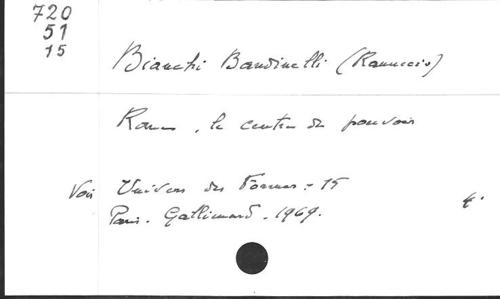 720
51
15
Bianchi Bandinelli (Ranuccio)
Rome, le centre du pouvoir
Voir Univers des Formes - 15
Paris. Gallimard. 1969.
4°